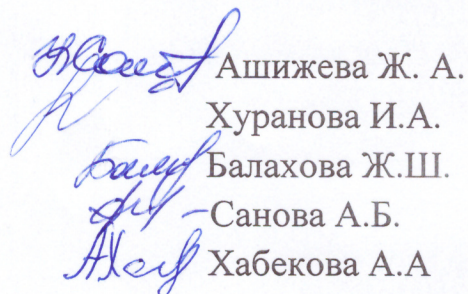 Ашижева Ж. А.
Хуранова И.А.
Балахова Ж.Ш.
Санова А.Б.
Хабекова А.А